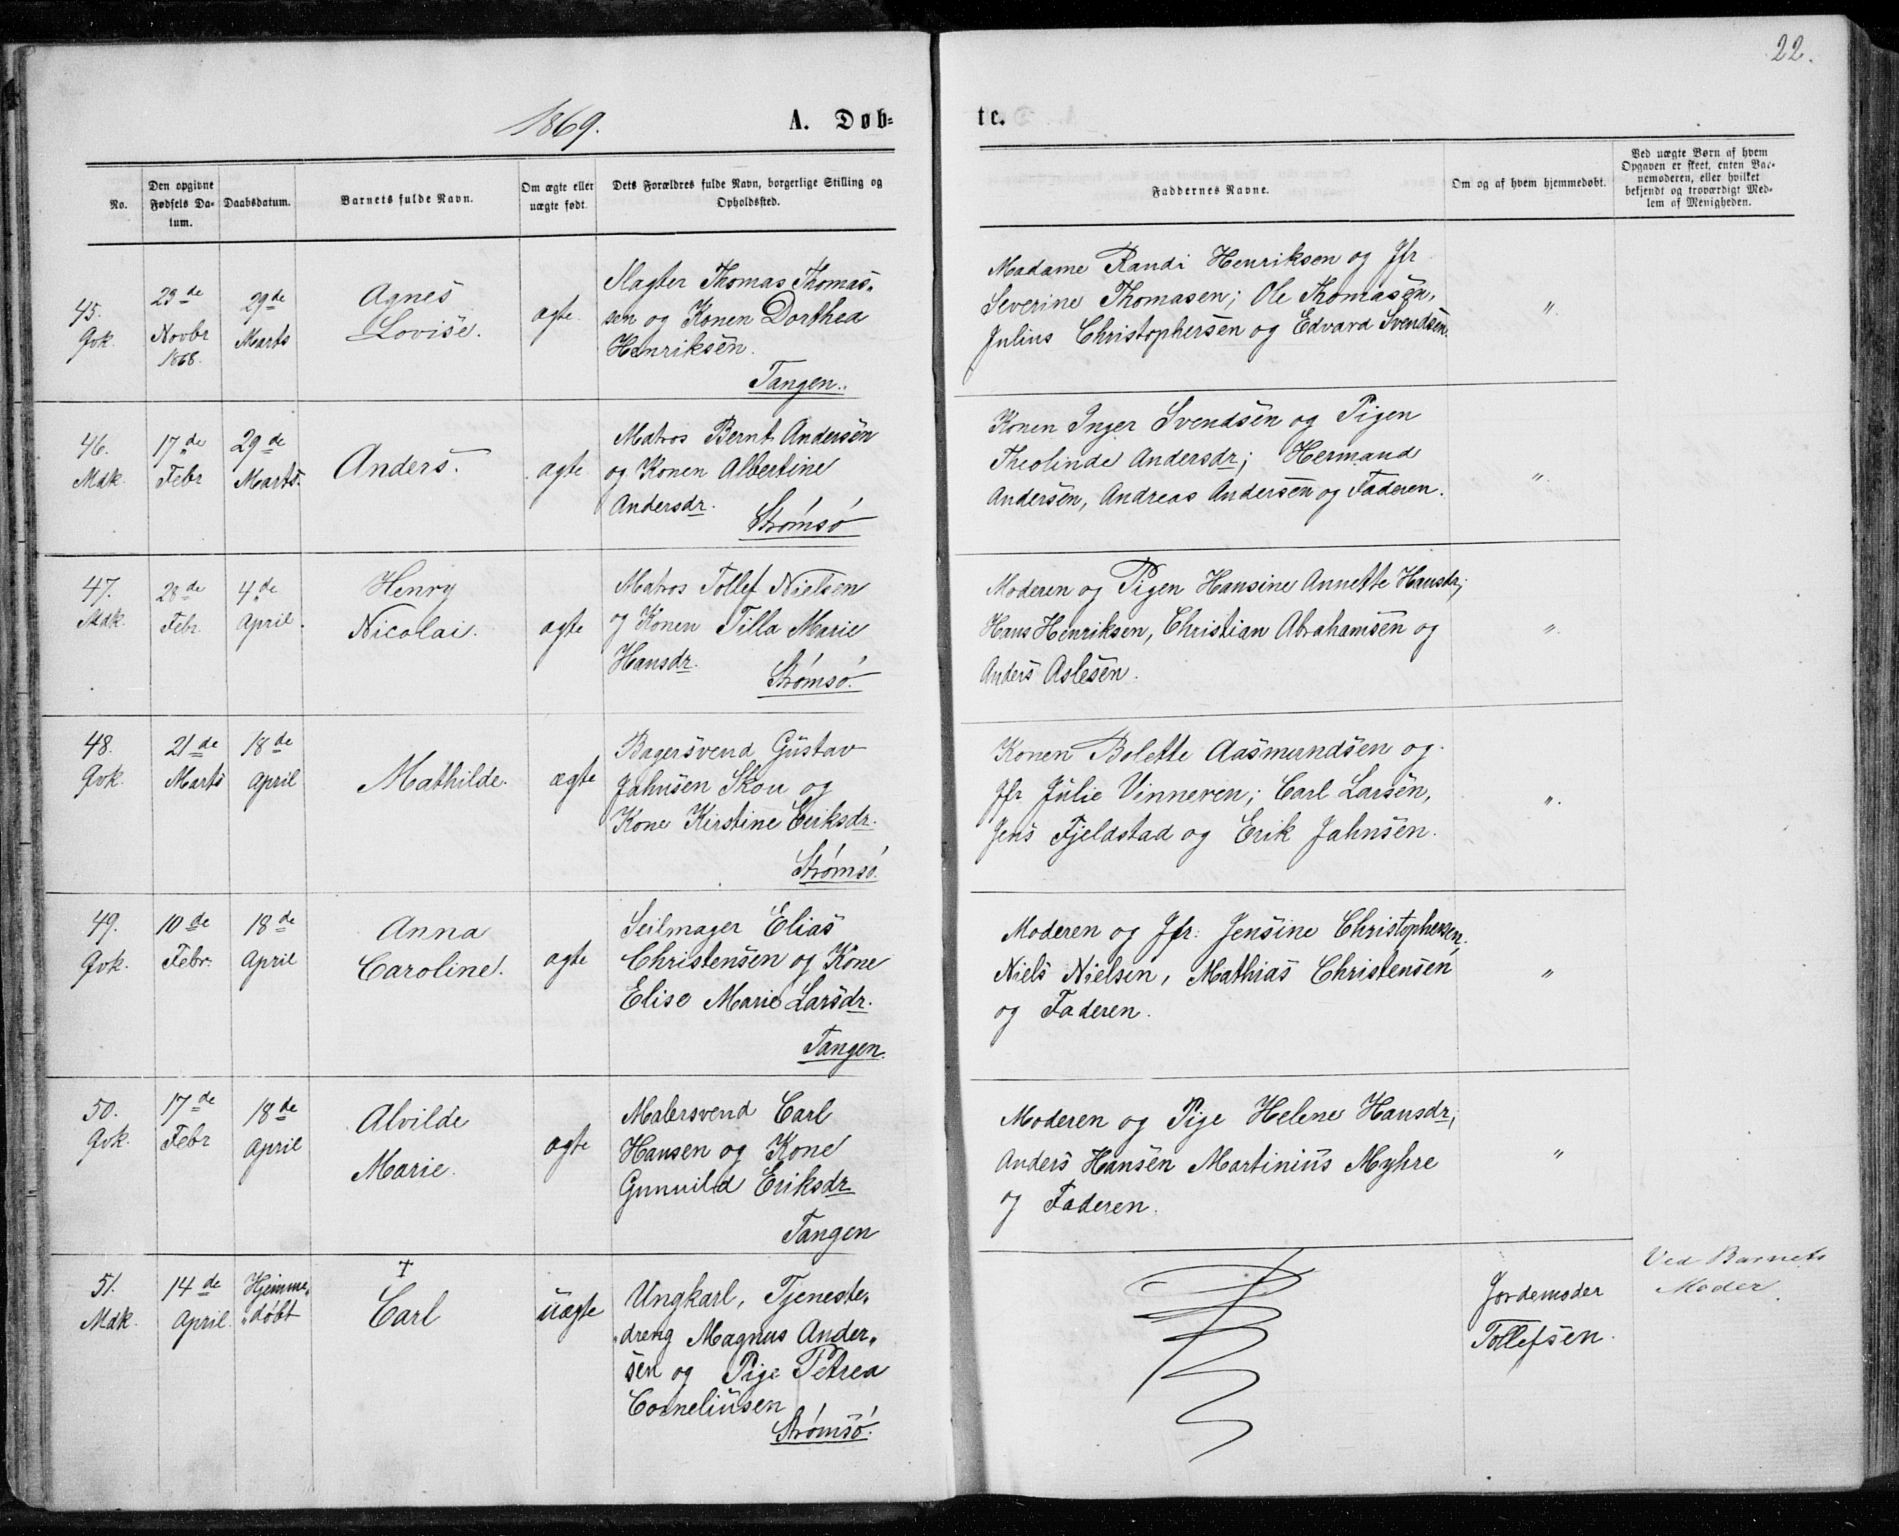 22.
1869.
A. Døb-
te.
No.
Den opgivne Fødsels Da-
tum.
Daabsdatum.
Barnets fulde Navn.
Om ægte eller
uægte født.
Dets Forældres fulde Navn, borgerlige Stilling og
Opholdssted.
Faddernes Navne.
Om og af hvem hjemmedøbt.
Ved uægte Børn af hvem
Opgaven er skeet, enten Bar-
nemoderen, eller hvilket
bekjendt og troværdigt Med-
lem af Menigheden.
45.
Qvk.
23de
Novbr
1868.
29de
Marts
Agnes
Lovise.
ægte.
Slagter Thomas Thomas-
sen og Konen Dorthea
Henriksen.
Tangen.
Madame Randi Henriksen og Jfr
Severine Thomasen; Ole Thomasen,
Julius Christophersen og Edvard Svendsen.
"
46.
Mdk.
17de
Febr
29de
Marts.
Anders.
ægte
Matros Bernt Andersen
og Konen Albertine
Andersdr.
Strømsø
Konen Inger Svendsen og Pigen
Theolinde Andersdr; Hermand
Andersen, Andreas Andersen og Faderen.
"
47.
Mdk.
28de
Febr.
4de
April.
Henry
Nicolai.
ægte
Matros Tollef Nielsen
og Konen Tilla Marie
Hansdr.
Strømsø.
Moderen og Pigen Hansine Annette Hansdr;
Hans Henriksen, Christian Abrahamsen og
Anders Aslesen.
"
48.
Qvk.
21de
Marts
18de
April
Mathilde.
ægte
Bagersvend Gustav
Jahnsen Skou og
Kone Kirstine Eriksdr.
Strømsø.
Konen Bolette Aasmundsen og
Jfr Julie Vinneren; Carl Larsen,
Jens Fjeldstad og Erik Jahnsen.
"
49.
Qvk.
10de
Febr.
18de
April
Anna
Caroline.
ægte
Seilmager Elias
Christensen og Kone
Elise Marie Larsdr.
Tangen.
Moderen og Jfr. Jensine Christophersen;
Niels Nielsen, Mathias Christensen
og Faderen.
"
50.
Qvk.
17de
Febr
18de
April
Alvilde
Marie.
ægte
Malersvend Carl
Hansen og Kone
Gunnild Eriksdr
Tangen
Moderen og Pige Helene Hansdr,
Anders Hansen Martinius Myhre
og Faderen.
"
51.
Mdk.
14de
April.
Hjemme-
døbt
†
Carl
uægte
Ungkarl, Tjeneste-
dreng Magnus Ander-
sen og Pige Petrea
Corneliusen
Strømsø.
Jordemoder
Tollefsen.
Ved Barnets
Moder.